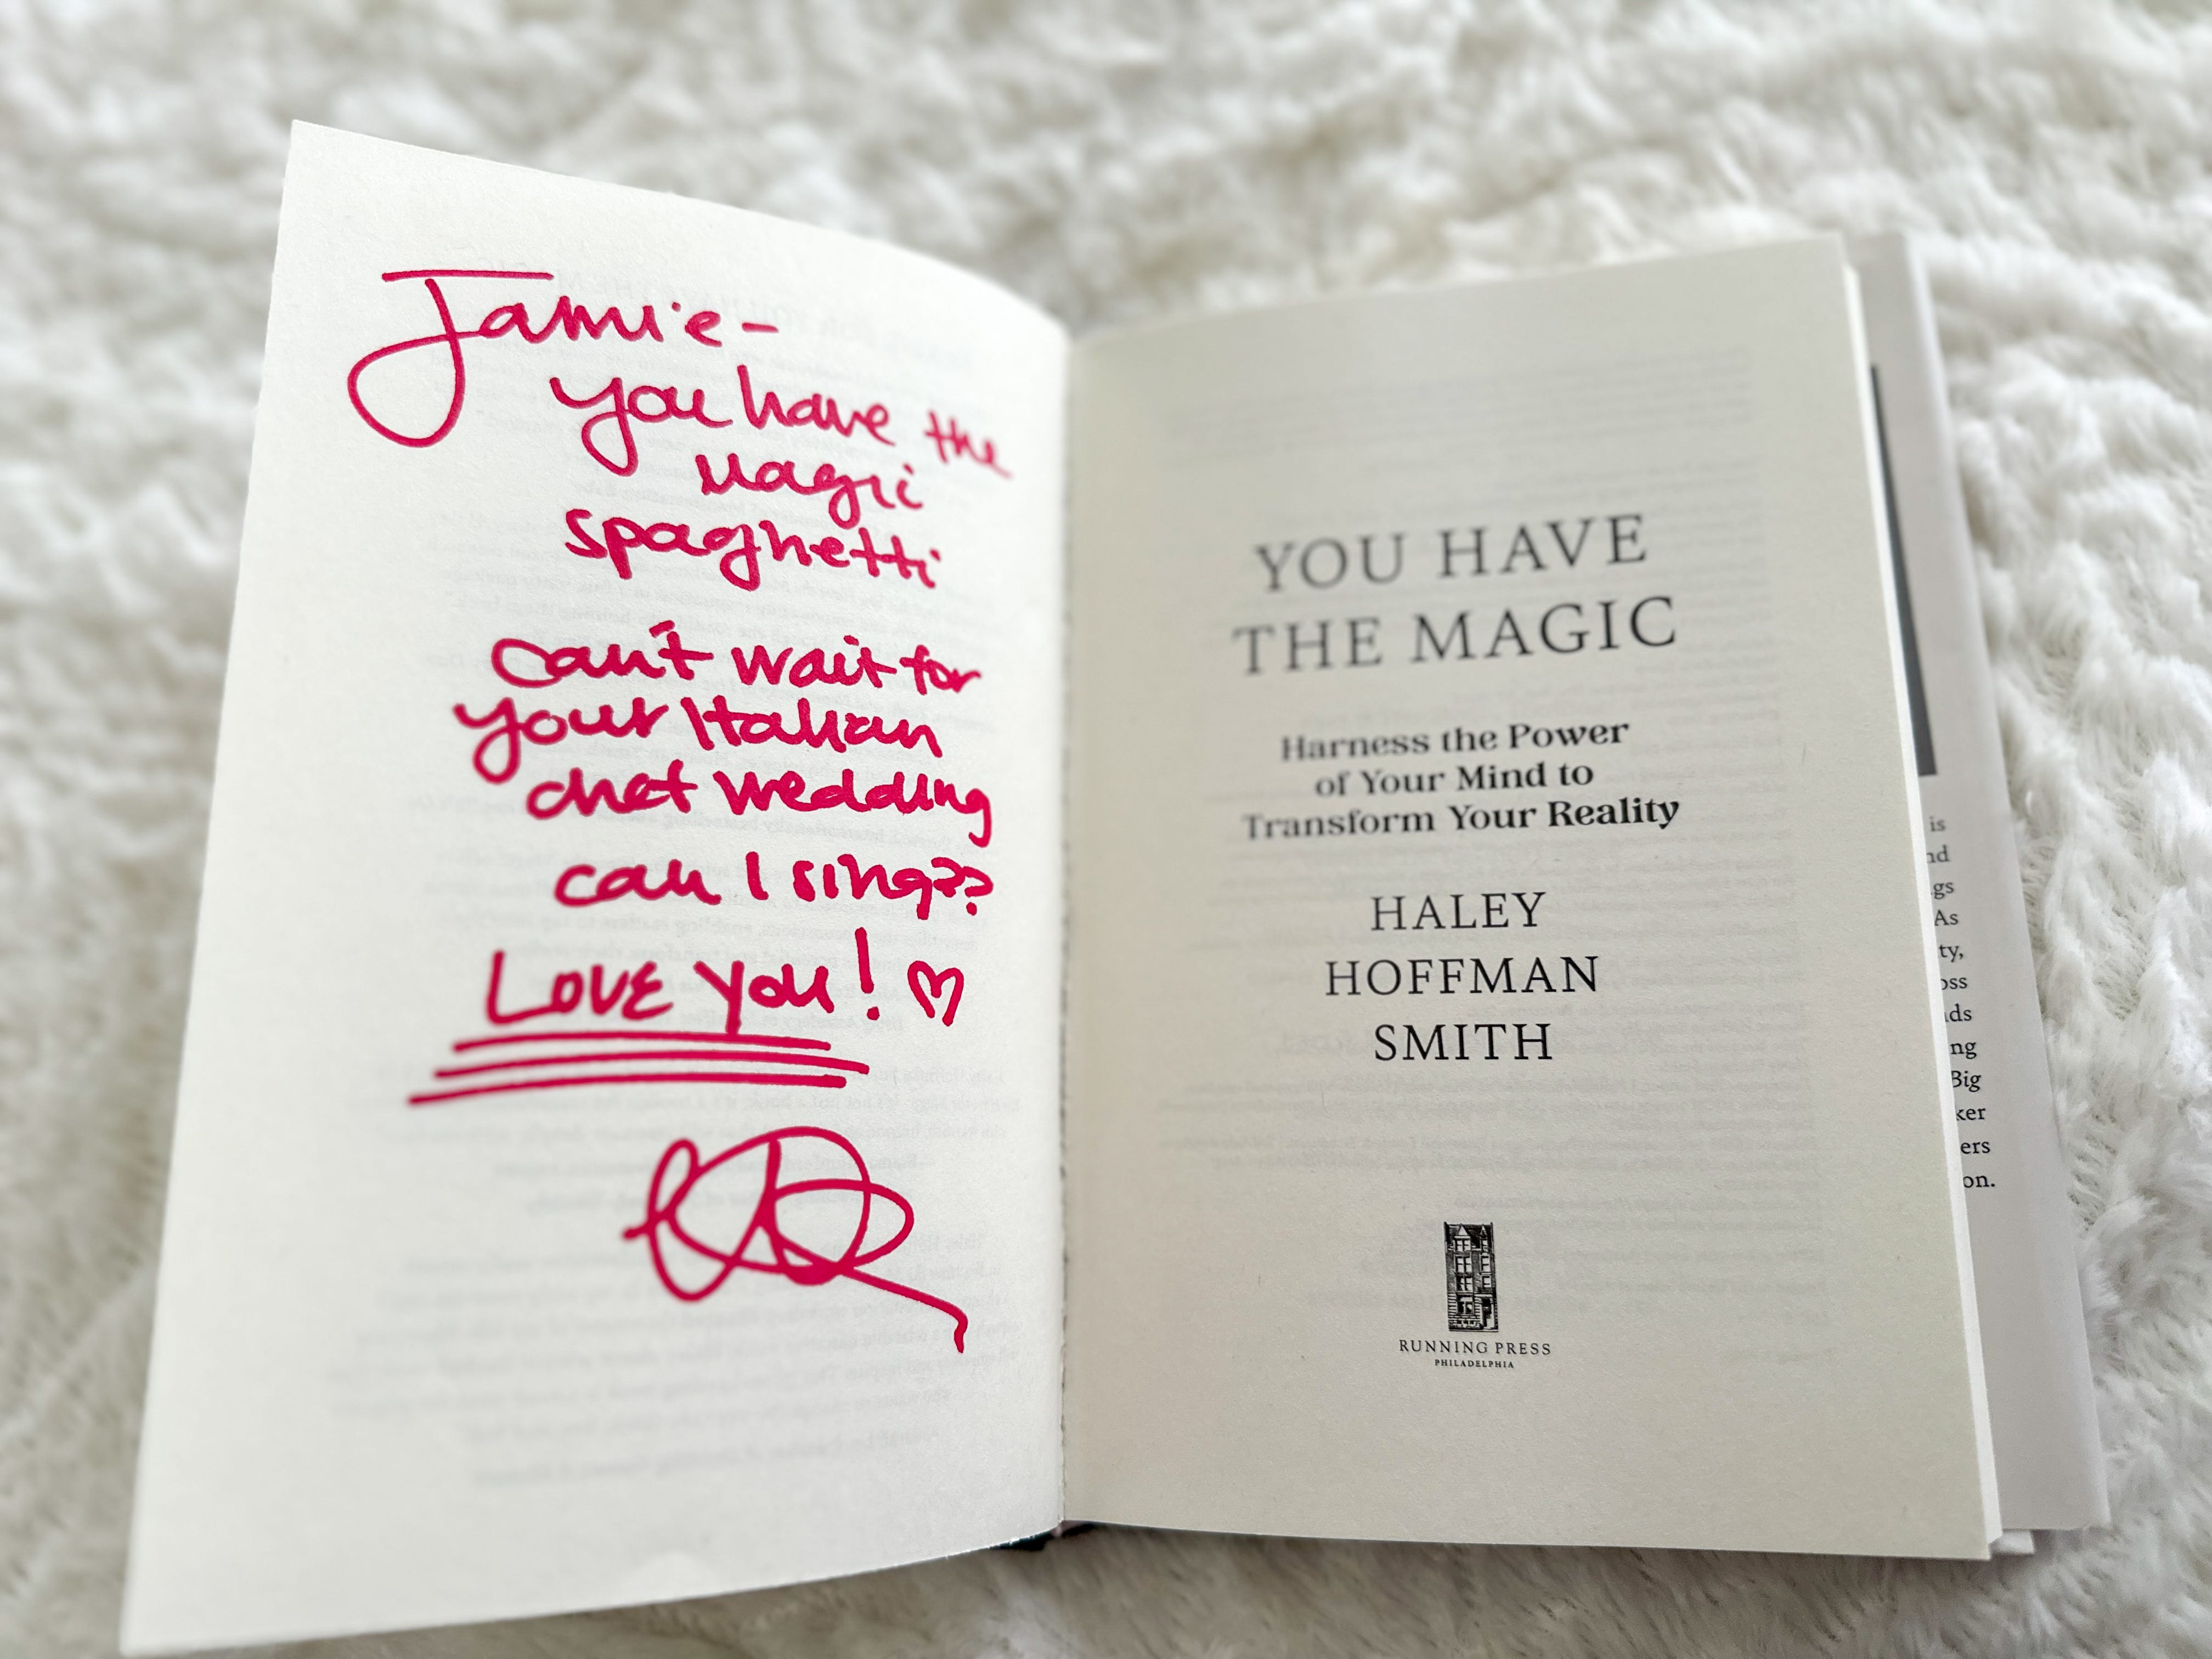 Jamie-
you have the
magic
spaghetti
can't wait for
your Italian
chef wedding
can I sing??
LOVE you! ♡
YOU HAVE
THE MAGIC
Harness the Power
of Your Mind to
Transform Your Reality
HALEY
HOFFMAN
SMITH
RUNNING PRESS
PHILADELPHIA
is
nd
gs
As
ty,
oss
ds
ng
Big
ker
ers
on.